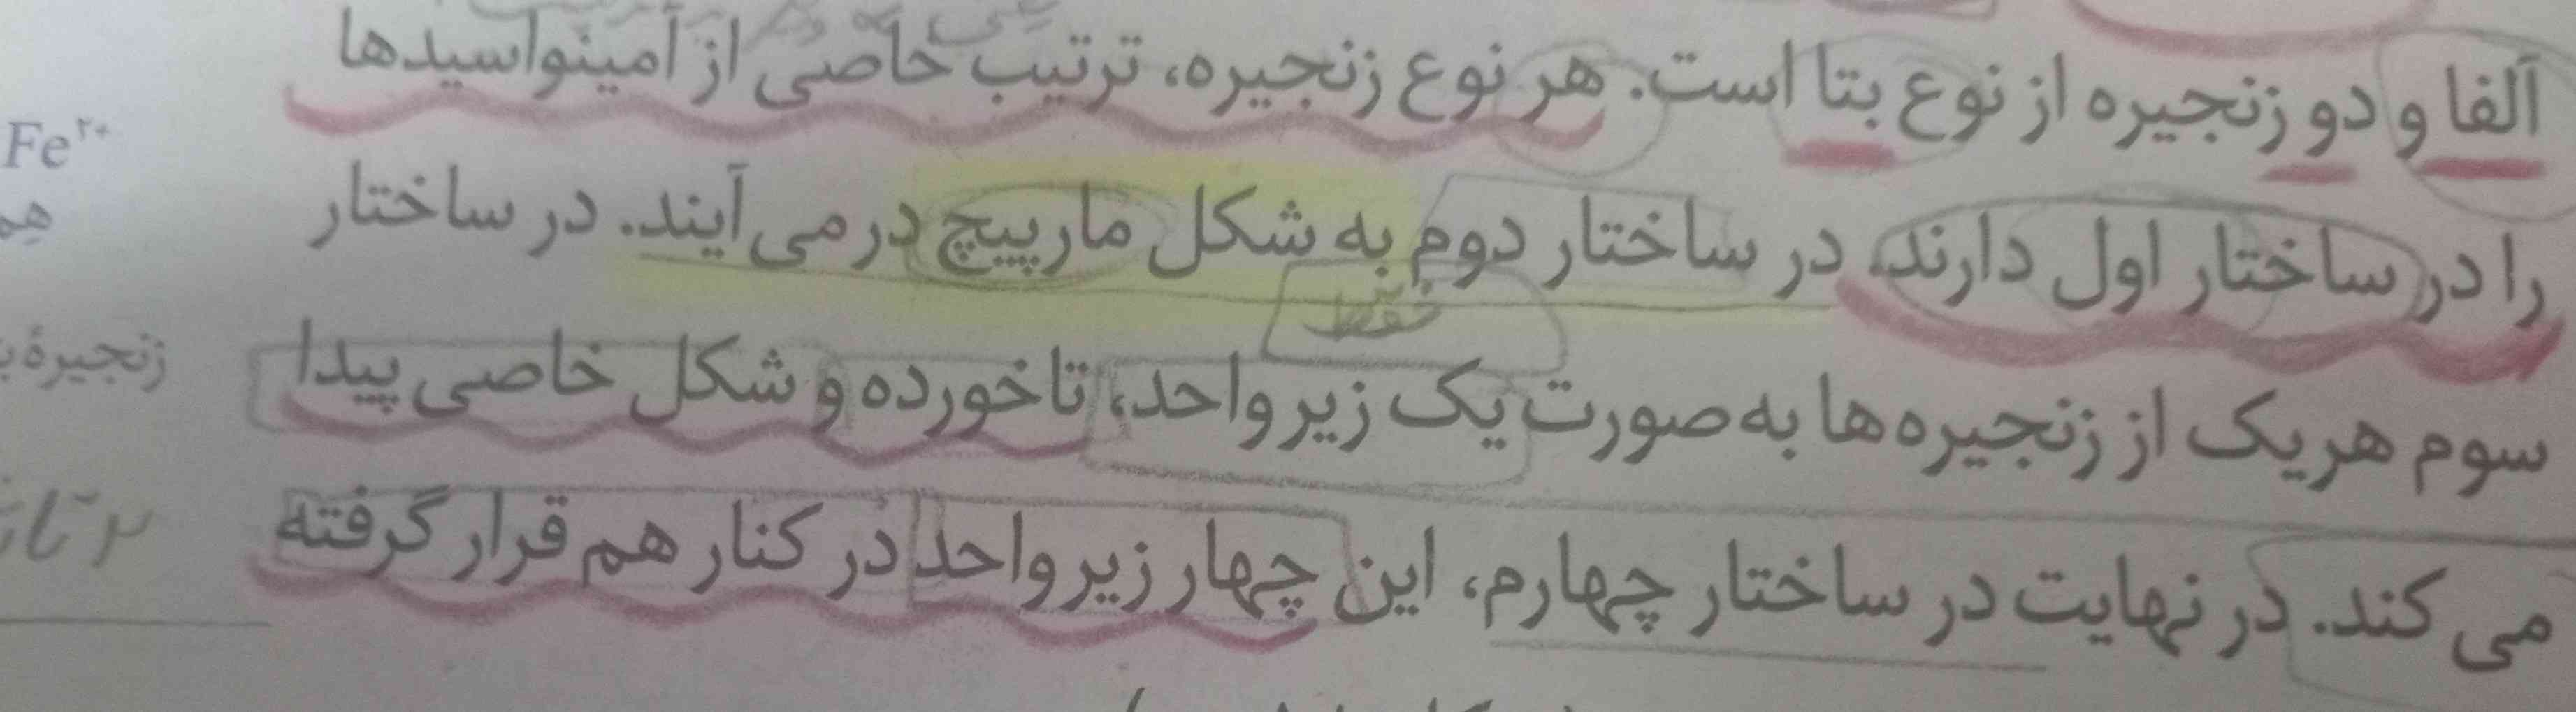 آلفا و دو زنجیره از نوع بتا است. هر نوع زنجیره، ترتیب خاصی از آمینواسیدها
Fe²⁺
را در ساختار اول دارند. در ساختار دوم به شکل مارپیچ در می‌آیند. در ساختار
فقط
سوم هر یک از زنجیره‌ها به صورت یک زیر واحد، تاخورده و شکل خاصی پیدا
زنجیرهٔ
می کند. در نهایت در ساختار چهارم، این چهار زیر واحد در کنار هم قرار گرفته